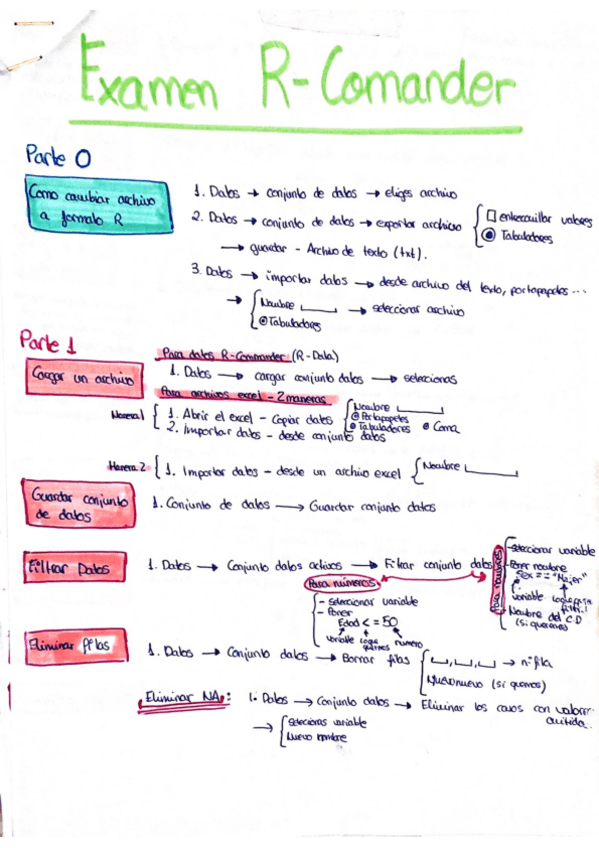 Examen R-Comander
Parte 0
Como cambiar archivo a formato R
1. Datos → conjunto de datos → eliges archivo
2. Datos → conjunto de datos → exportar archivo { □ entrecomillar valores
◉ Tabuladores
→ guardar - Archivo de texto (txt).
3. Datos → importar datos → desde archivo del texto, portapapeles ...
→ { Nombre → seleccionar archivo
◉ Tabuladores
Parte 1
Para datos R-Commander (R-Data)
Cargar un archivo
1. Datos → cargar conjunto datos → seleccionas
Para archivos excel - 2 maneras
Manera 1 { 1. Abrir el excel - Copiar datos { Nombre
◉ Portapapeles
2. Importar datos - desde conjunto datos ◉ Tabuladores ◉ Coma
Manera 2 { 1. Importar datos - desde un archivo excel { Nombre
Guardar conjunto de datos
1. Conjunto de datos → Guardar conjunto datos
Filtrar Datos
1. Datos → Conjunto datos activos → Filtrar conjunto datos
Para nombres
- Seleccionar variable
- Poner nombre
Sex == "Mujer"
variable
Nombre del C.D
(si queremos)
Para números
- Seleccionar variable
- Poner
Edad <= 50
variable número
Eliminar filas
1. Datos → Conjunto datos → Borrar filas { , , → nº fila
nuevo (si queremos)
Eliminar NA: 1. Datos → Conjunto datos → Eliminar los casos con valores
omitida
→ { Seleccionas variable
Nuevo nombre